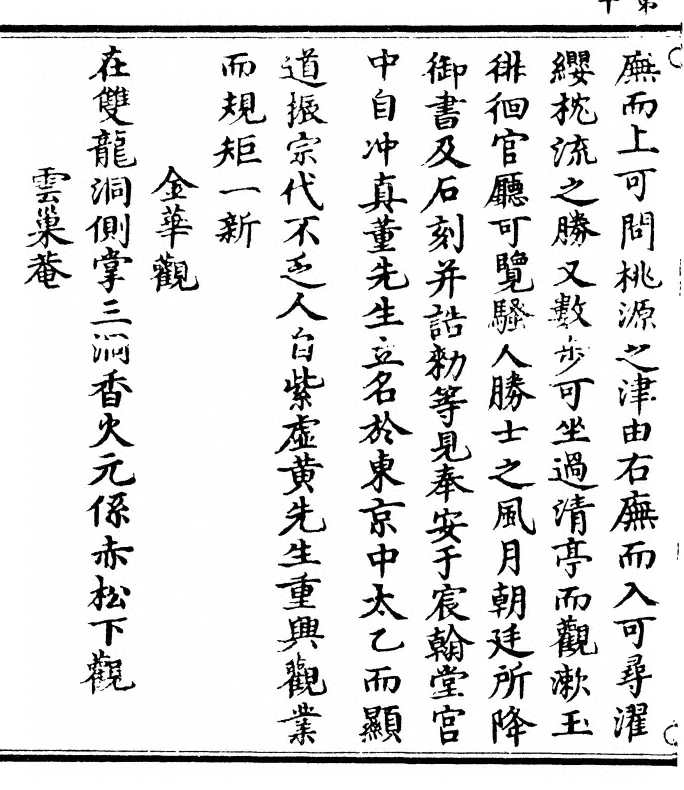 廡而上可問桃源之津由右廡而入可尋濯
纓枕流之勝又數步可坐過清亭而觀漱玉
徘徊官廳可覽騷人勝士之風月朝廷所降
御書及石刻并誥勑等見奉安于宸翰堂宮
中自冲真董先生立名於東京中太乙而顯
道振宗代不乏人自紫虛黃先生重興觀業
而規矩一新
金華觀
在雙龍洞側掌三洞香火元係赤松下觀
雲巢菴